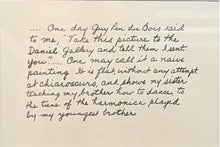 .... One day Guy Pen du Bois said
to me, "Take this picture to the
Daniel Gallery and tell them I sent
you".... One may call it a naive
painting. It is flat, without any attempt
at chiaroscuro, and shows my sister
teaching my brother how to dance, to
the tune of the harmonica played
by my youngest brother.